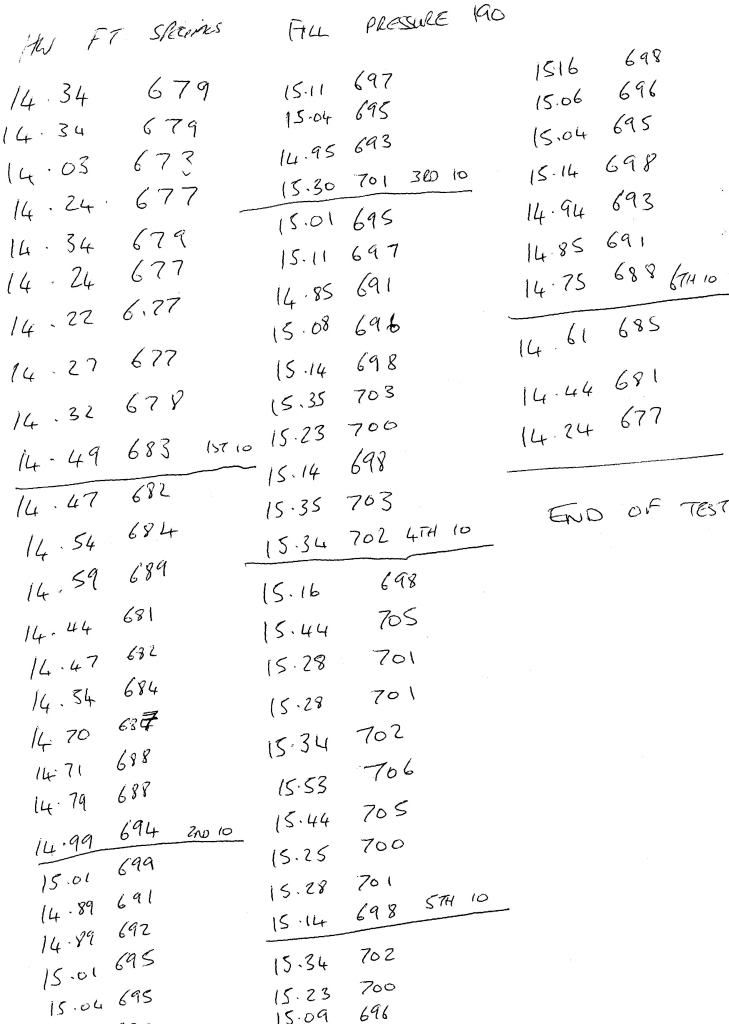 HW FT SPRINGS FILL PRESSURE 190
14.34 679
14.34 679
14.03 673
14.24 677
14.34 679
14.24 677
14.22 6.77
14.27 677
14.32 678
14.49 683 1ST 10
14.47 682
14.54 684
14.59 689
14.44 681
14.47 682
14.54 684
14.70 687
14.71 688
14.79 688
14.99 694 2ND 10
15.01 699
14.89 691
14.89 692
15.01 695
15.04 695
15.11 697
15.04 695
14.95 693
15.30 701 3RD 10
15.01 695
15.11 697
14.85 691
15.08 696
15.14 698
15.35 703
15.23 700
15.14 698
15.35 703
15.34 702 4TH 10
15.16 698
15.44 705
15.28 701
15.28 701
15.34 702
15.53 706
15.44 705
15.25 700
15.28 701
15.14 698 5TH 10
15.34 702
15.23 700
15.09 696
1516 698
15.06 696
15.04 695
15.14 698
14.94 693
14.85 691
14.75 688 6TH 10
14.61 685
14.44 681
14.24 677
END OF TEST